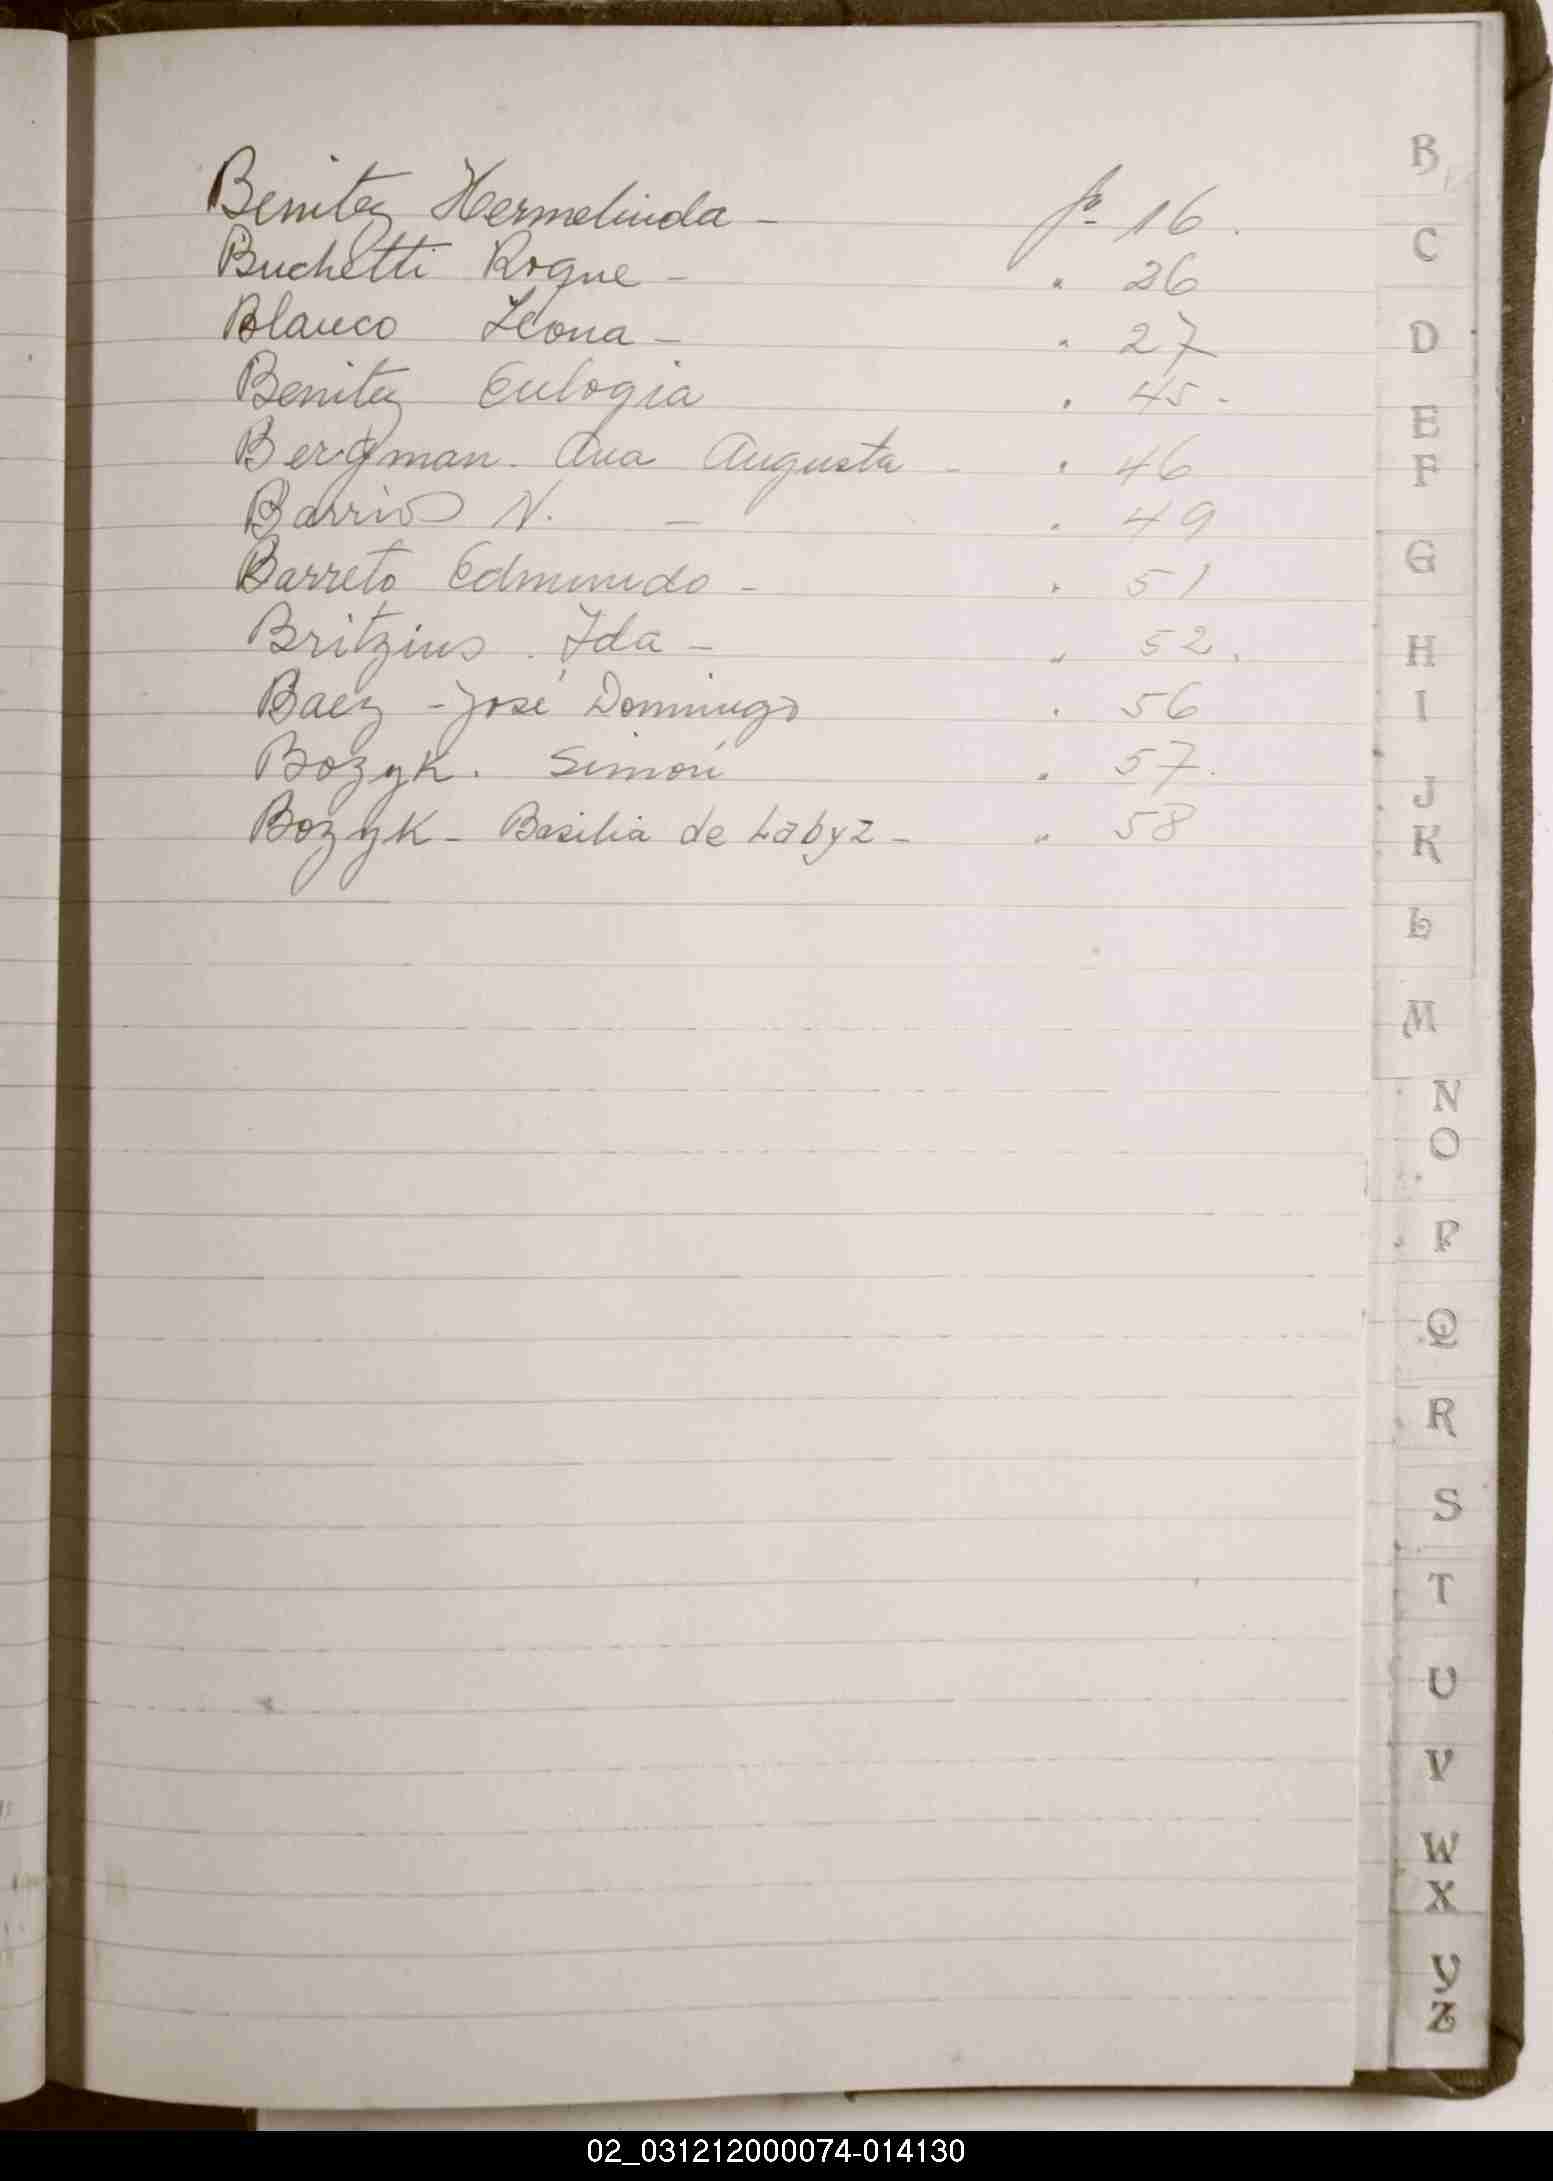 Benitez Hermelinda - fº 16.
Buchetti Roque - " 26
Blanco Leona - " 27
Benitez Eulogia " 45 -
Bergman. Ana Augusta - " 46
Barrios N. - " 49
Barreto Edmundo - " 51
Britzius. Ida - " 52.
Baez - José Domingo " 56
Bozyk. Simón " 57.
Bozyk - Basilia de Labyz - " 58
B
C
D
E
F
G
H
I
J
K
L
M
N
O
P
Q
R
S
T
U
V
W
X
Y
Z
02_031212000074-014130